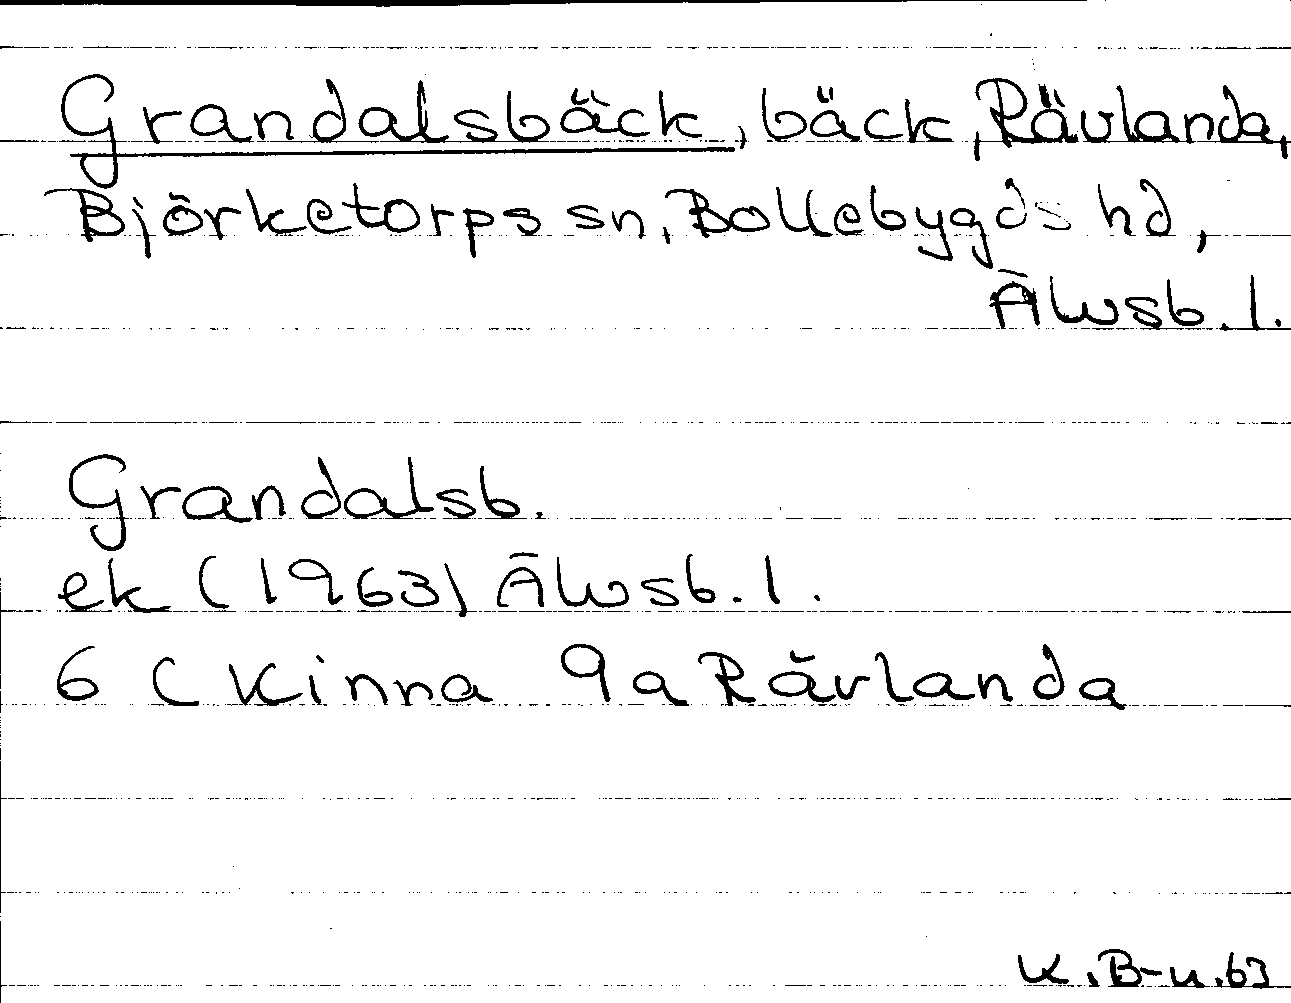 Grandalsbäck, bäck, Rävlanda,
Björketorps sn, Bollebygds hd,
Älvsb. l.
Grandalsb.
ek (1963) Älvsb. l.
6 C Kinna 9a Rävlanda
K.B-u.63